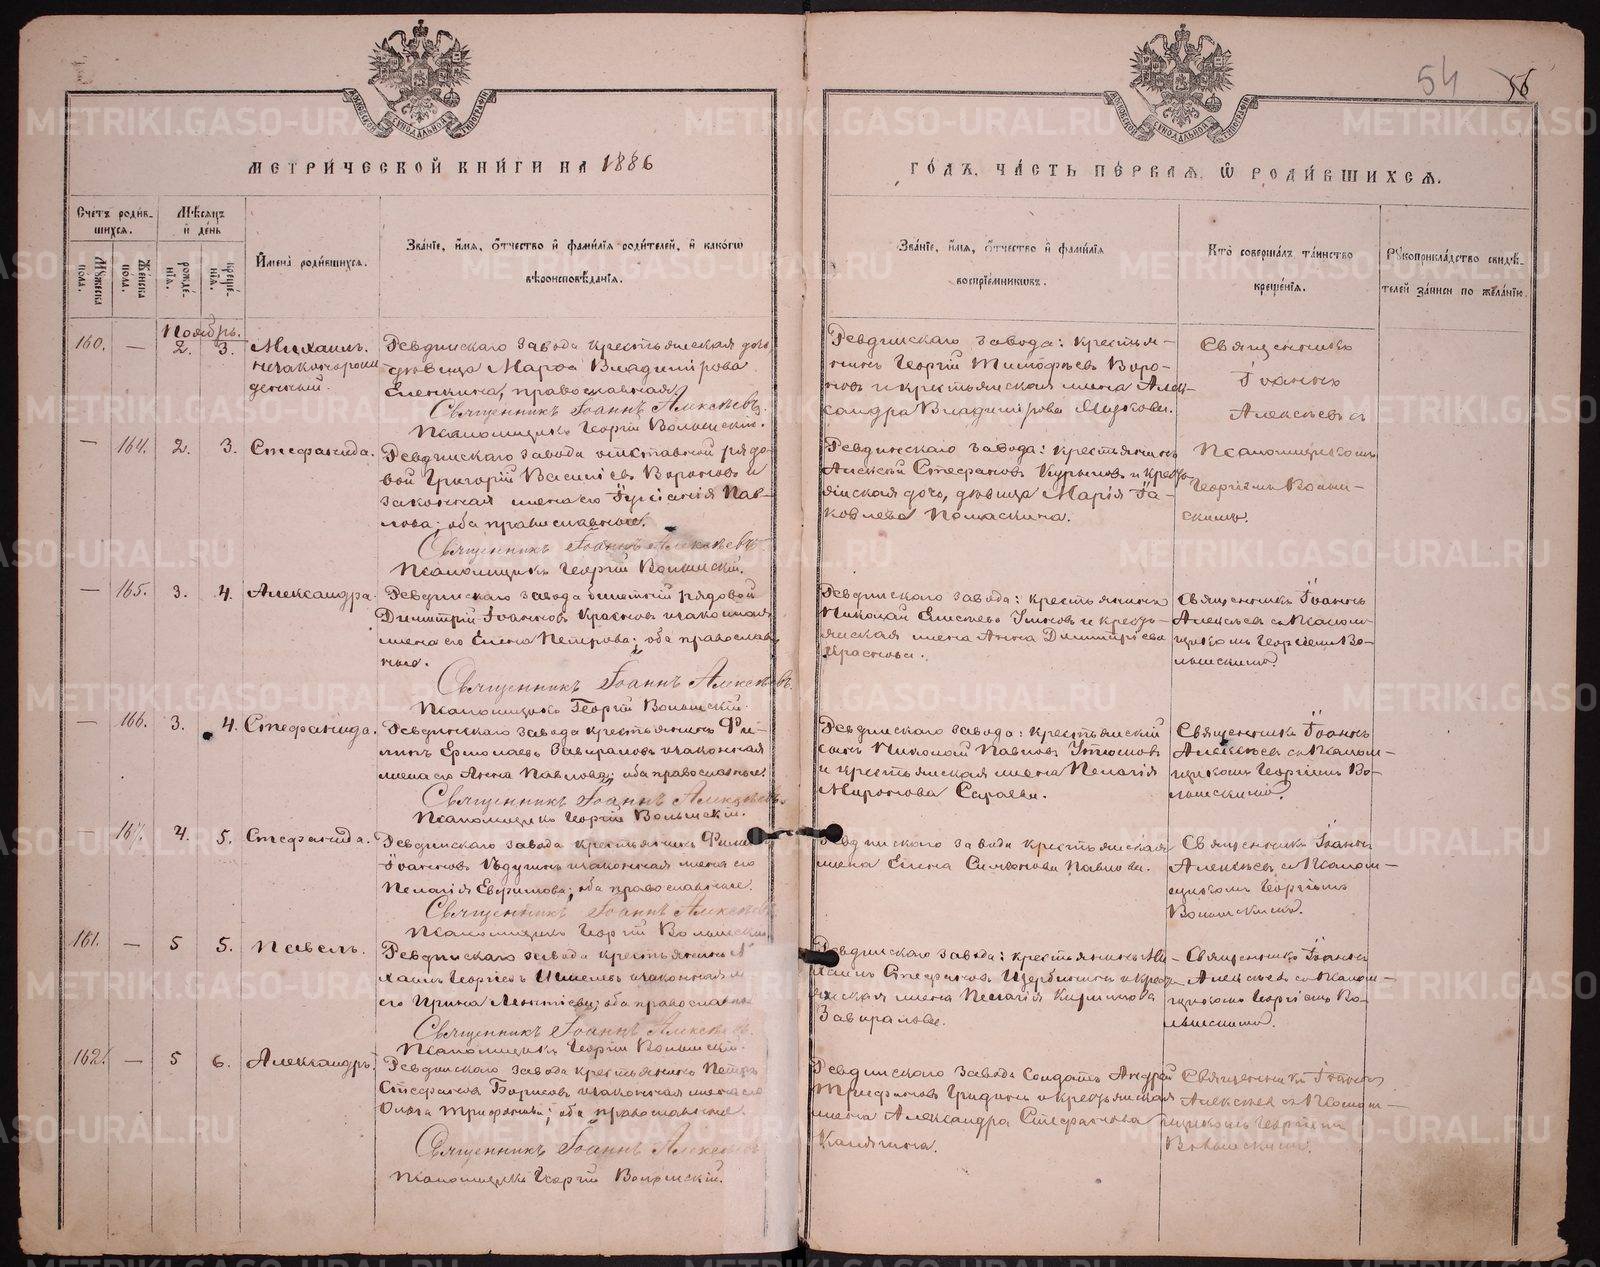 54 56
МЕТРИ́ЧЕСКОЙ КНИ́ГИ НА 1886
ГО́ДЪ, ЧА́СТЬ ПЕ́РВАЯ, Ѡ РОДИ́ВШИХСЯ.
Счетъ роди́вшихся.
Мужеска пола.
Женска пола.
Мѣсяцъ и день
рожде́нїя.
креще́нїя.
Имена̀ роди́вшихся.
Зва́нїе, и́мя, ѻ́тчество и фами́лїя роди́телей, и како́гѡ
вѣроисповѣ́данїя.
Зва́нїе, и́мя, ѻ́тчество и фами́лїя
воспрїе́мникѡвъ.
Кто̀ соверша́лъ та́инство
креще́нїя.
Рукоприкла́дство свидѣ́-
телей за́писи по жела́нїю.
Ноябрь.
160. — 2. 3. Михаилъ.
незаконорож
денный.
Ревдинскаго завода крестьянская дочь
дѣвица Марѳа Владимірова
православная.
Священникъ Іоаннъ Алексѣевъ.
Псаломщикъ Георгій Волынскій.
Ревдинскаго завода: крестья-
нинъ Георгій Тимофѣевъ Воро-
новъ и крестьянская жена Алек-
сандра Владимірова
Священникъ
Іоаннъ
Алексѣевъ съ
— 164. 2. 3. Стефанида.
Ревдинскаго завода отставной рядо-
вой Григорій Василіевъ Вороновъ и
законная жена его Пав-
лова; оба православные.
Священникъ Іоаннъ Алексѣевъ.
Псаломщикъ Георгій Волынскій.
Ревдинскаго завода: крестьянинъ
Алексѣй Стефановъ и кресть-
янская дочь, дѣвица Марія Іа-
ковлева
Псаломщикомъ
Георгіемъ Волын-
скимъ.
— 165. 3. 4. Александра.
Ревдинскаго завода билетный рядовой
Димитрій Іоанновъ Красновъ и законная
жена его Елена Петрова; оба православ-
ные.
Священникъ Іоаннъ Алексѣевъ.
Псаломщикъ Георгій Волынскій.
Ревдинскаго завода: крестьянинъ
Николай Елисѣевъ и кресть-
янская жена Анна Димитріева
Краснова.
Священникъ Іоаннъ
Алексѣевъ съ Псалом-
щикомъ Георгіемъ Во-
лынскимъ.
— 166. 3. 4. Стефанида.
Ревдинскаго завода крестьянинъ Фи-
липъ Ермолаевъ Завираловъ и законная
жена его Анна Павлова; оба православные.
Священникъ Іоаннъ Алексѣевъ.
Псаломщикъ Георгій Волынскій.
Ревдинскаго завода: крестьянскій
сынъ Николай Павловъ Утюмовъ
и крестьянская жена Пелагія
Миронова
Священникъ Іоаннъ
Алексѣевъ съ Псалом-
щикомъ Георгіемъ Во-
лынскимъ.
— 167. 4. 5. Стефанида.
Ревдинскаго завода крестьянинъ
Іоанновъ и законная жена его
Пелагія Евфимова; оба православные.
Священникъ Іоаннъ Алексѣевъ
Псаломщикъ Георгій Волынскій
Ревдинскаго завода крестьянская
жена Елена Симеонова Павлова.
Священникъ Іоаннъ
Алексѣевъ съ Псалом-
щикомъ Георгіемъ
Волынскимъ.
161. — 5 5. Павелъ.
Ревдинскаго завода крестьянинъ
Георгіевъ и законная
его Ирина Леонтіева; оба православные
Священникъ Іоаннъ Алексѣевъ.
Псаломщикъ Георгій Волынскій.
Ревдинскаго завода: крестьянинъ Ми-
хаилъ Стефановъ Щербининъ и кресть-
янская жена Пелагія Кирилова
Завиралова.
Священникъ Іоаннъ
Алексѣевъ съ Псалом-
щикомъ Георгіемъ Во-
лынскимъ.
162. — 5 6. Александръ.
Ревдинскаго завода крестьянинъ Петръ
Стефановъ Борисовъ и законная жена его
Ольга Трифонова; оба православные.
Священникъ Іоаннъ Алексѣевъ
Псаломщикъ Георгій Волынскій.
Ревдинскаго завода Солдатъ Андрей
Трифоновъ Гридинъ и крестьянская
жена Александра Стефанова
Калягина.
Священникъ Іоаннъ
Алексѣевъ съ Псалом-
щикомъ Георгіемъ
Волынскимъ.
METRIKI.GASO-URAL.RU